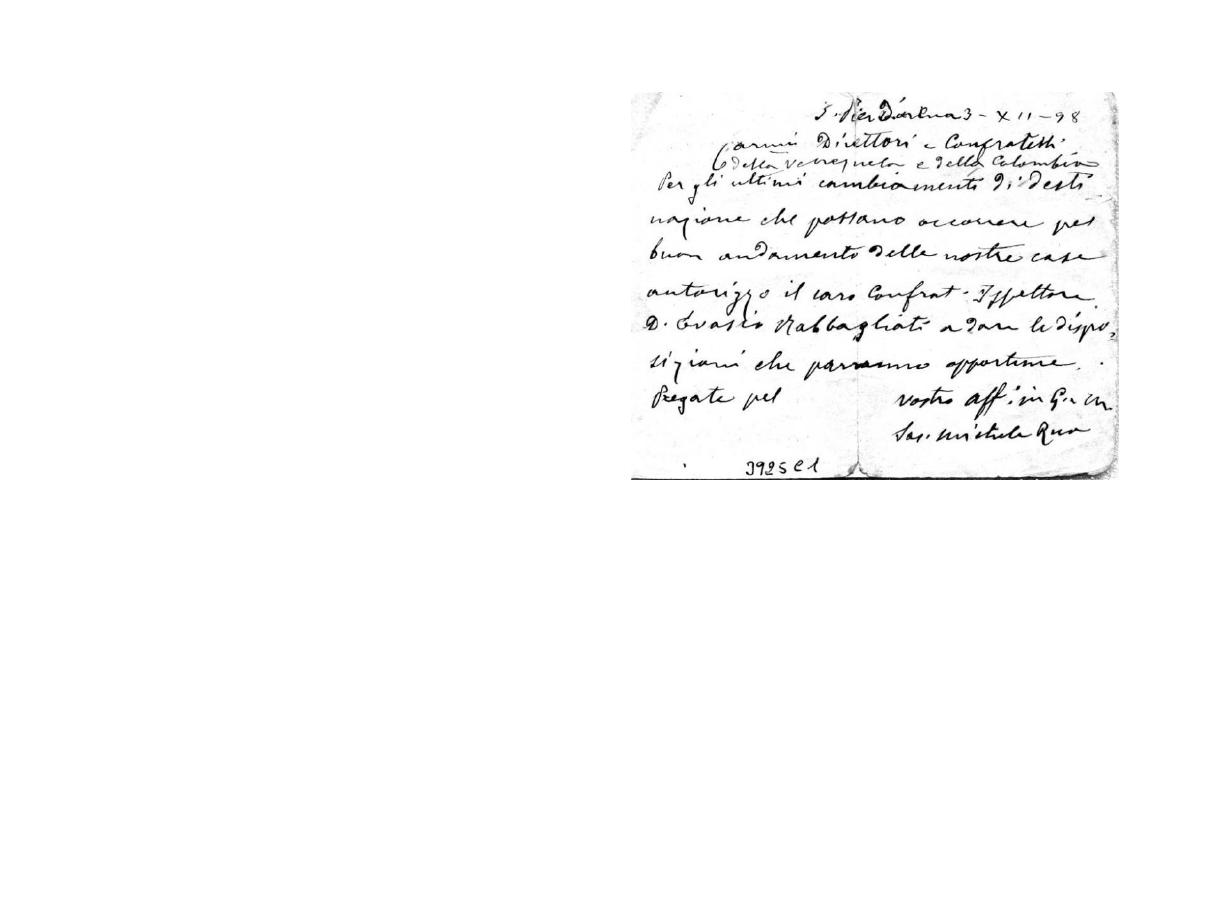 S. Pier D'Arena 3 - XII - 98
Carmi Direttori e Confratelli
della Venezuela e della Colombia
Per gli ultimi cambiamenti di desti
nazione che possano occorrere pel
buon andamento delle nostre case
autorizzo il caro Confrat. Ispettore
D. Evasio Rabbagliati a dare le dispo-
sizioni che parranno opportune.
Pregate pel vostro aff. in G. e M.
Sac. Michele Rua
3925 C 1